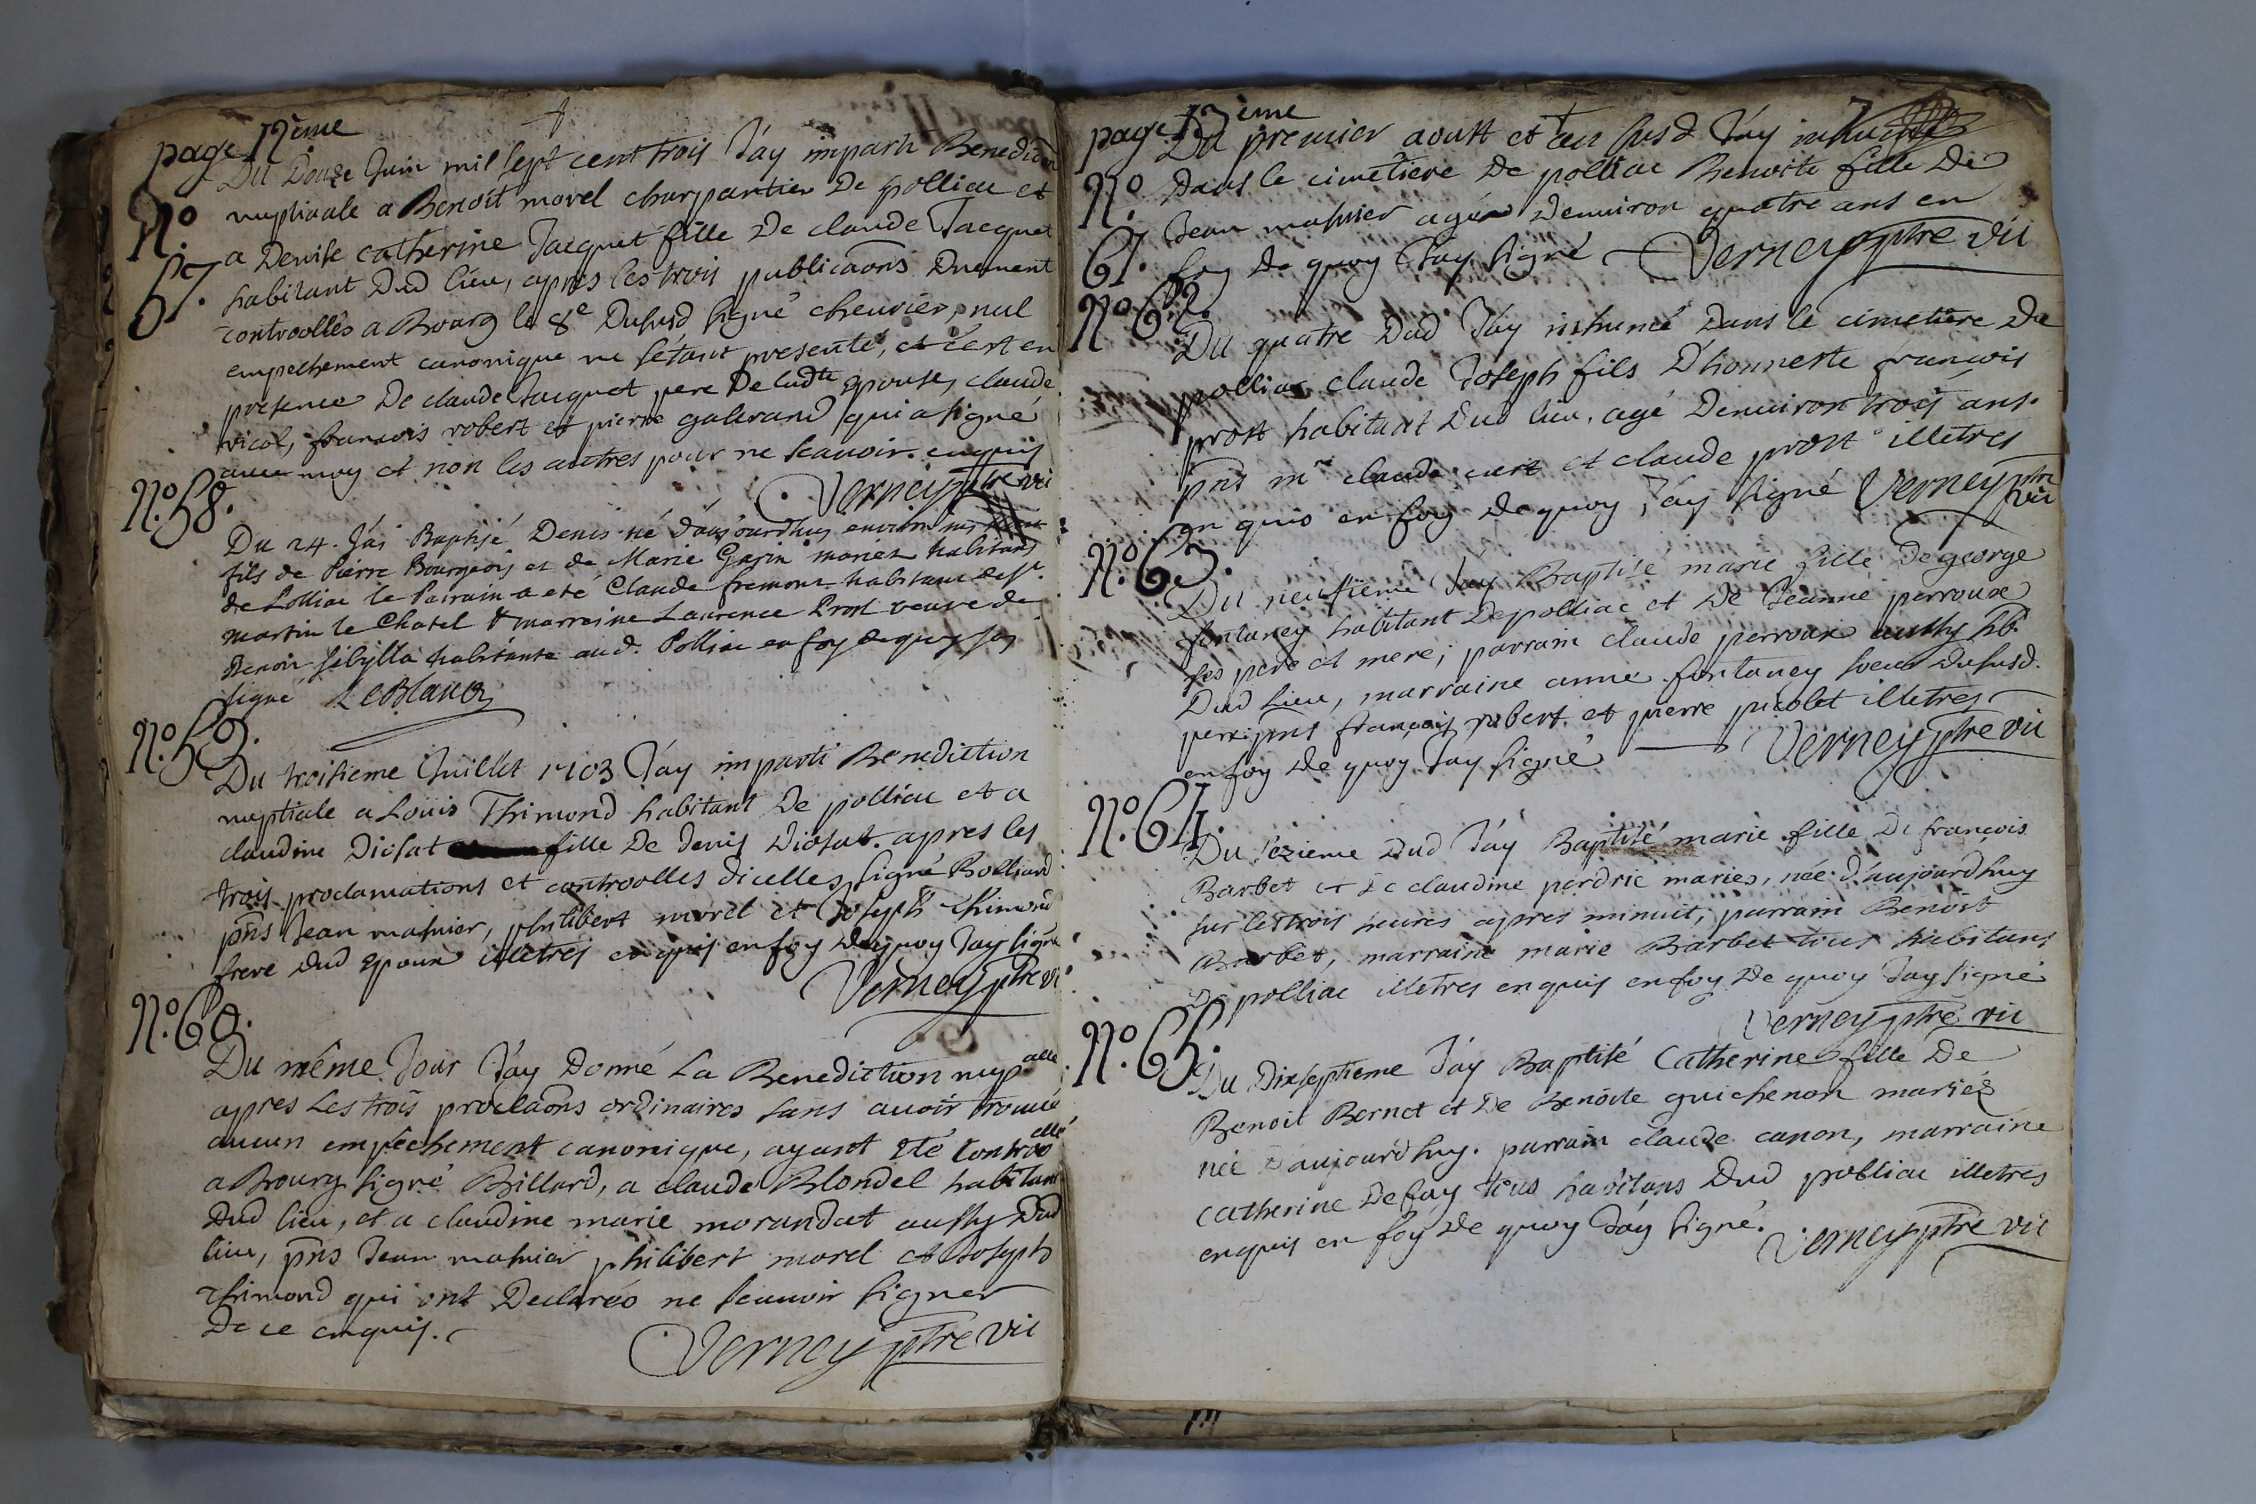 page 12eme
Du Douze Juin mil sept cent trois J'ay imparti Benediction
nuptiaale a Benoit morel charpantier De polliac et
N°. 57. a Denise catherine Jacquet fille De claude Jacquet
habitant Dud lieu, apres les trois publicaons Duement
controollés a Bourg le 8e Dusусd signé cheurier, nul
empechement canonique ne s'étant presenté, et c'est en
presence De claude Jacquet pere De ladte Epouse, claude
vicol, francois robert et pierre galerand qui a signé
auec moy et non les autres pour ne scauoir. enquis
Verney ptre vic
N°. 58.
Du 24. J'ai Baptisé Denis né d'aujourdhuy environ
fils de Pierre Bourgeois et de Marie Gasin mariez habitans
de Polliac le Pairain a eté Claude fremont habitant de St.
Martin le Chatel & marraine Laurence Prost veuve de
Benoit Sibylla habitante aud. Polliac en foy de quoy jay
signé LeBlanc
N°. 59.
Du troisieme Juillet 1703 J'ay imparti Benediction
nuptiale a Louis Thimond habitant De polliac et a
claudine Diosat fille De Denis Diosat. apres les
trois proclamations et controolles dicelles, signé Rolliand
pns Jean masnier, philibert morel et Joseph Thimond
frere Dud Epoux illetrés enquis en foy Dequoy Jay signé
Verney ptre vi
N°. 60.
Du même Jour J'ay Donné La Benediction nupalle
apres Les trois proclaons ordinaires sans auoir trouué
aucun empêchement canonique, ayant Eté Controollé
a Bourg signé Billard, a claude Blondel habitant
Dud lieu, et a claudine marie morandat aussy Dud
lieu, pns Jean masnier philibert morel et Joseph
Thimond qui ont Declaréo ne scauoir signer
De ce enquis.
Verney ptre vic
page 13eme
Du premier aoust et an susd J'ay inhumé
N°. Dans le cimetiere De polliac Benoite fille De
Jean masnier agée Denuiron quatre ans en
61. foy De quoy J'ay signé Verney ptre vic
N° 62.
Du quatre Dud J'ay inhumé Dans le cimetiere De
polliac claude Joseph fils D'honneste francois
prost habitant Dud lieu. agé Denuiron trois ans.
pns mr claude cuet et claude prost illetres
en quis en foy Dequoy J'ay signé Verney ptre vic
N°. 63.
Du neufieme J'ay Baptisé marie fille De george
fontaney habitant De polliac et De Jeanne perroux
ses pere et mere; parrain claude perroux aussy hb.
Dud lieu, marraine anne fontaney soeur Dusud.
pere; pns françois robert et pierre picolet illetres
en foy De quoy J'ay signé Verney ptre vic
N°. 64.
Du sézieme Dud J'ay Baptisé marie fille De françois
Barbet et De claudine perdrix mariés, née d'aujourdhuy
sur les trois heures apres minuit, parrain Benoit
Barbet, marraine marie Barbet tous habitans
De polliac illetres enquis en foy De quoy J'ay signé
Verney ptre vic
N°. 65.
Du Dixseptieme J'ay Baptisé Catherine fille De
Benoit Bernet et De Benoite guichenon mariéz
née D'aujourd'huy. parrain claude canon, marraine
Catherine Defay tous habitans Dud polliac illetres
enquis en foy De quoy J'ay signé.
Verney ptre vic